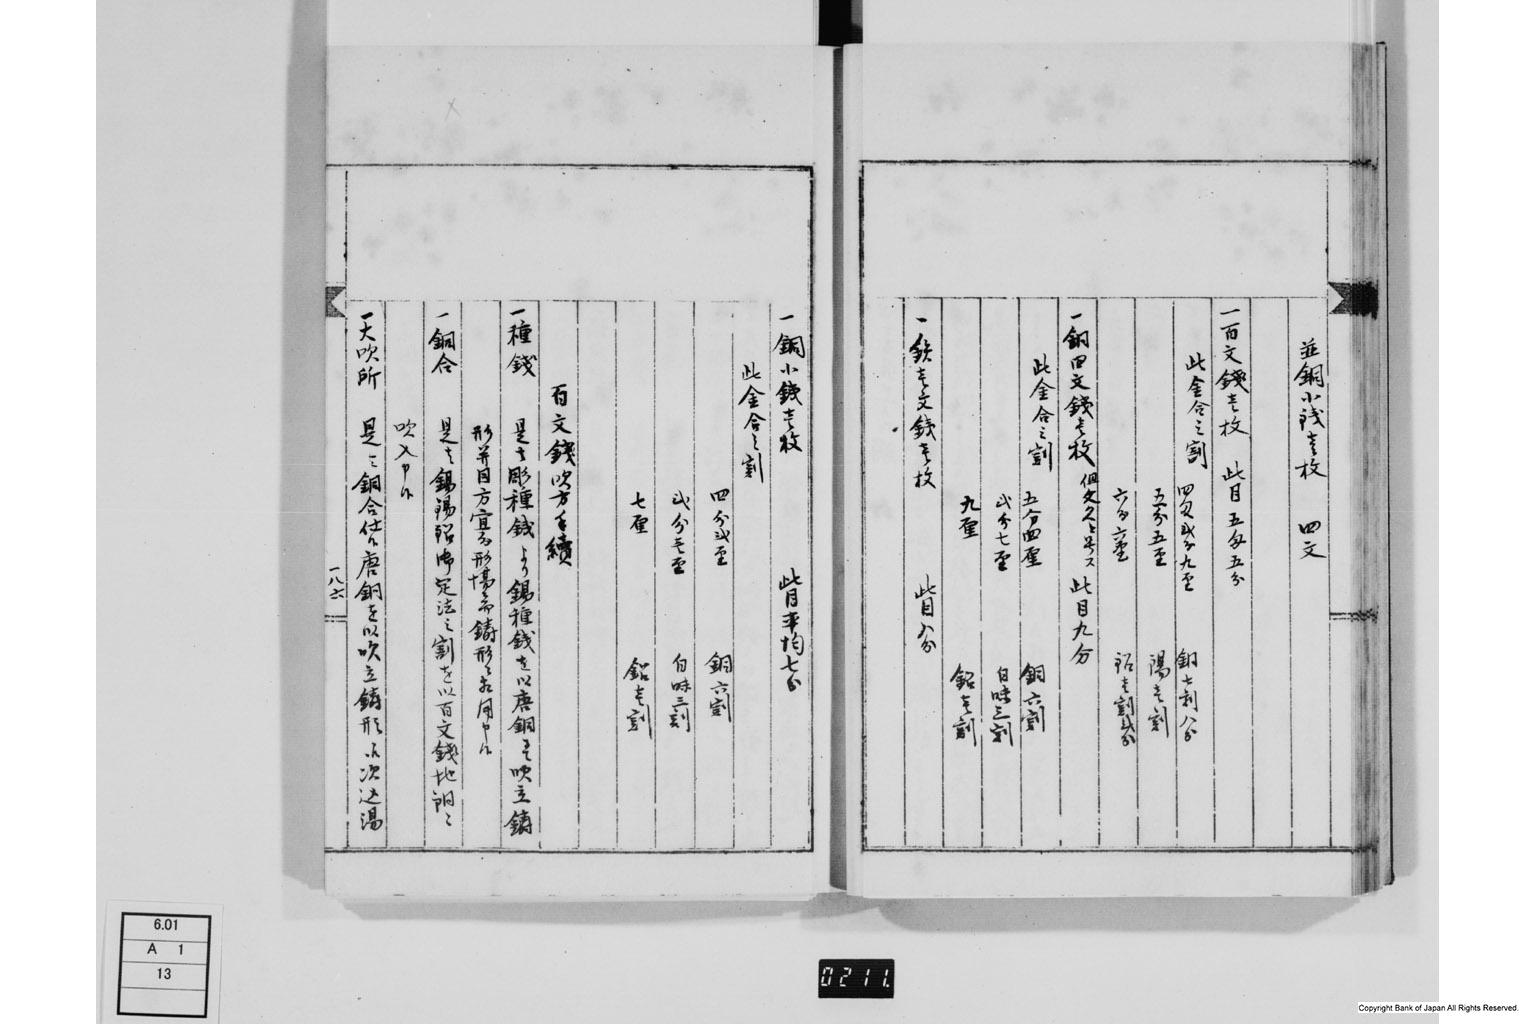 並銅小銭壱枚　四文
一百文銭壱枚　此目五匁五分
此金合之割　四匁弐分九厘　銅七割八分
五分五厘　錫壱割
六分六厘　鉛壱割弐分
一銅四文銭壱枚　此目九分
此金合之割　五分四厘　銅六割
弐分七厘　白味三割
九厘　鉛壱割
一鉄壱文銭壱枚　此目八分
一銅小銭壱枚　此目平均七分
此金合之割
四分弐厘　銅六割
弐分壱厘　白味三割
七厘　鉛壱割
百文銭吹方手続
一種銭　是者彫種銭より錫種銭を以唐銅ニ而吹立鋳
形并目方宜分形場ニ而鋳形ニ相用申候
一銅合　是者錫鉛御定法之割を以百文銭地銅ニ
吹入申候
一大吹所　是ニ銅合仕候唐銅を以吹立鋳形江次込湯
一八六
6.01
A 1
13
0211.
Copyright Bank of Japan All Rights Reserved.